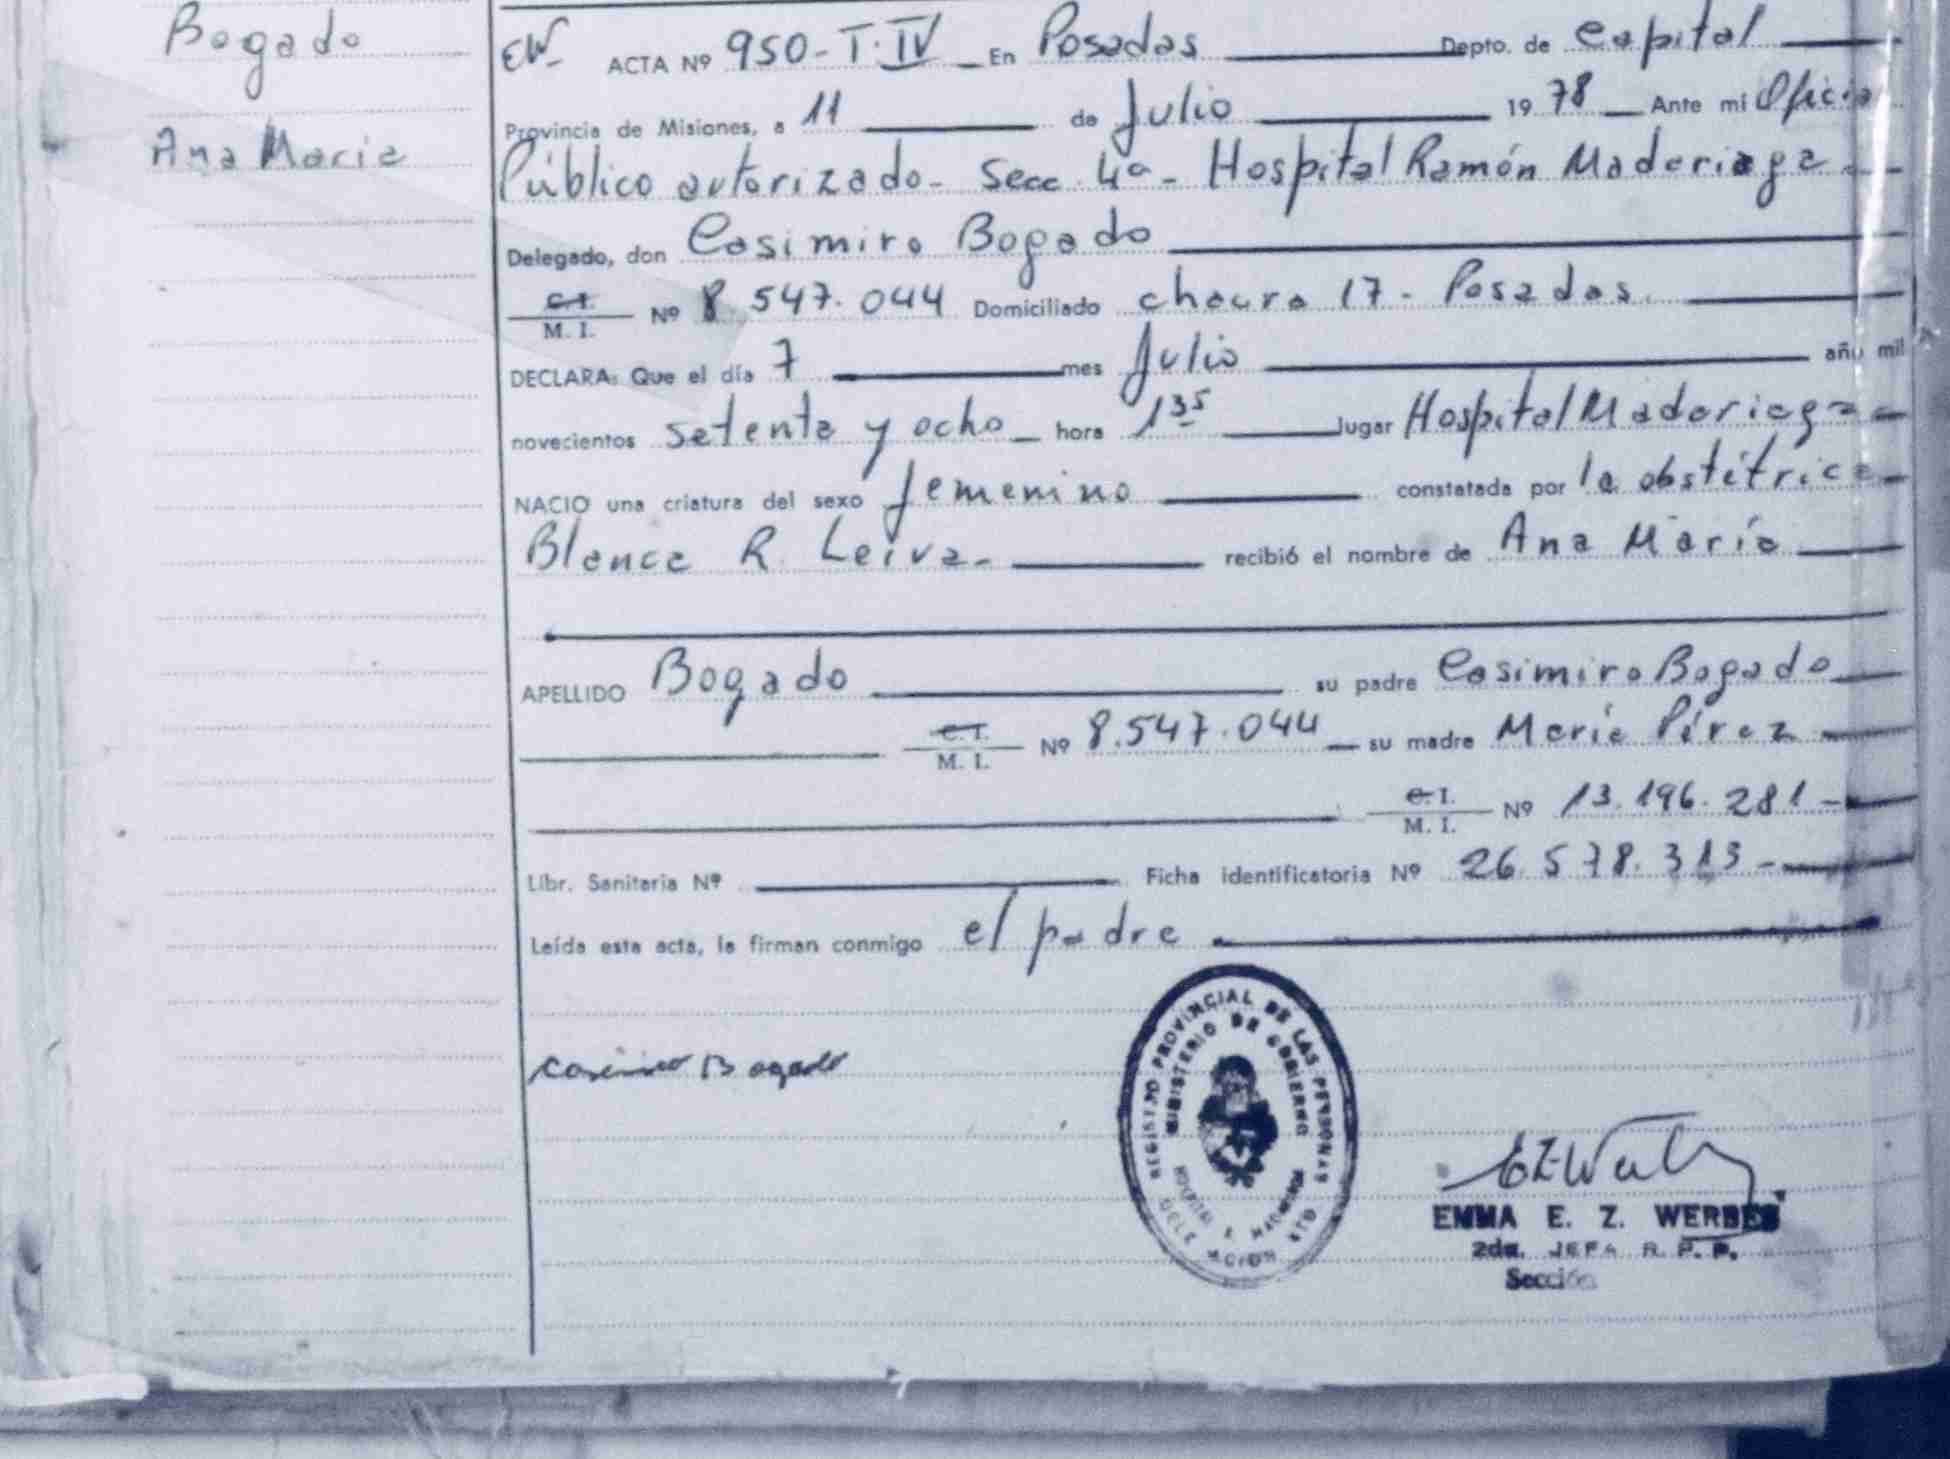 Bogado
Ana Maria
EW- ACTA Nº 950-T.IV En Posadas Depto. de Capital
Provincia de Misiones, a 11 de Julio 1978 Ante mi Oficia
Público autorizado- Secc. 4ª- Hospital Ramón Madariaga
Delegado, don Casimiro Bogado
C.I. / M. I. Nº 8 547.044 Domiciliado chacra 17- Posadas.
DECLARA: Que el día 7 mes Julio año mil
novecientos setenta y ocho hora 1 35 lugar Hospital Madariaga
NACIO una criatura del sexo femenino constatada por la obstétrica
Blanca R. Leiva- recibió el nombre de Ana María
APELLIDO Bogado su padre Casimiro Bogado
C.I. / M. I. Nº 8.547.044 su madre María Pérez
C.I. / M. I. Nº 13.196.281-
Libr. Sanitaria Nº Ficha identificatoria Nº 26.578.313-
Leída esta acta, la firman conmigo el padre
Casimiro Bogado
REGISTRO PROVINCIAL DE LAS PERSONAS
MINISTERIO DE GOBIERNO
EMMA E. Z. WERBES
2da. JEFA R. P. P.
Sección